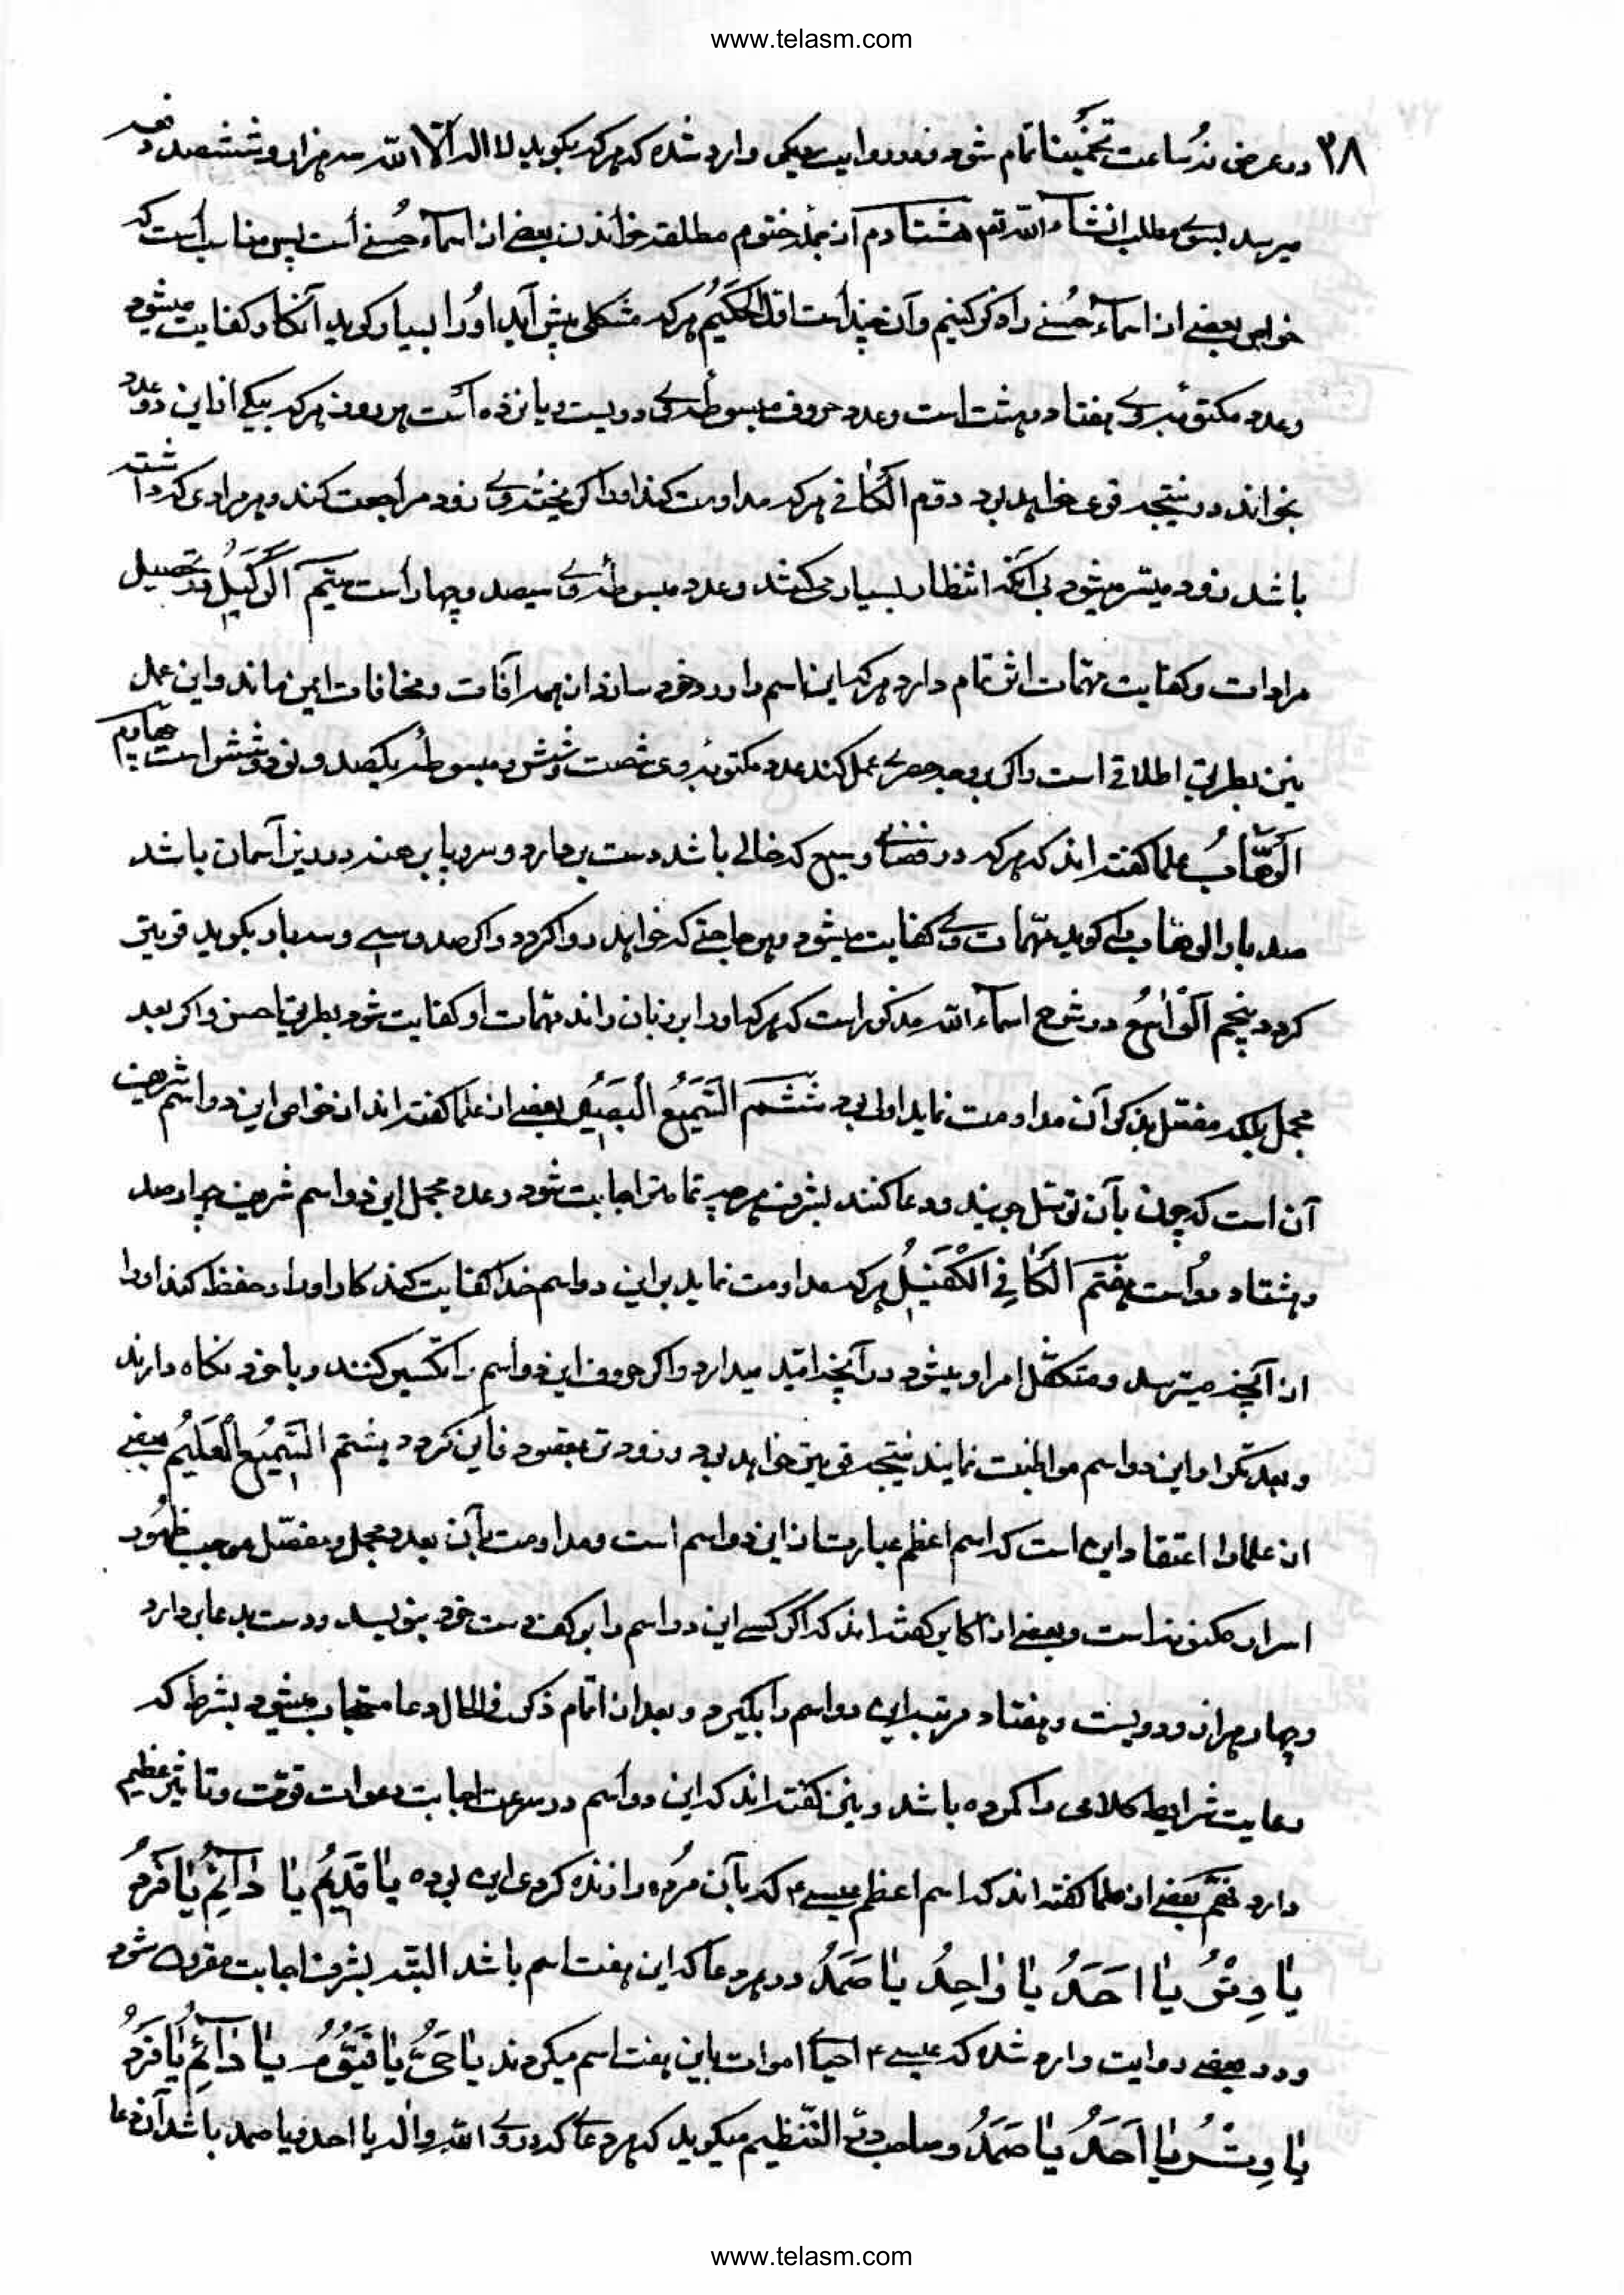 www.telasm.com
۳۸ در عرض نه ساعت تخمینا تمام شود و در روایت دیگر وارد شده که هر که بگوید لا اله الا الله سه هزار و ششصد دفعه
میرسد بسوی مطلب انشاء الله تع هشتادم از جمله ختوم مطلقه خواندن بعضی از اسماء حُسنی است پس مناسب است که
خواص بعضی از اسماء حُسنی را ذکر کنیم و آن چند است اول اَلحَکیمُ هر که مشکلی پیش آید او را بسیار گوید آنکار کفایت میشود
و عدد مکتوبی وی هفتاد و هشت است و عدد حروف مبسوطه وی دویست و پانزده است هر روز هر که بیکی از این دو عدد
بخواند در نتیجه قوی خواهد بود دوم اَلکافی هر که مداومت کند او را گریخته وی زود مراجعت کند و هر مرادی که داشته
باشد زود میسر میشود بی آنکه انتظار بسیار می کشد و عدد مبسوطه وی سیصد و چهار است سیم اَلوَکیلُ در تحصیل
مرادات و کفایت مهمات اثر تمام دارد هر که این اسم را ورد خود سازد از همه آفات و مخافات ایمن ماند و این عمل
نیز بطریق اطلاقی است و اگر بوجه حصر عمل کند عدد مکتوبه وی شصت و شش و مبسوطه یکصد و نود و شش است چهارم
اَلوَهّابُ علما گفته اند که هر که در فضای وسیع که خالی باشد دست بردارد و سر و پا برهنه در زیر آسمان باشد
صد بار الوهاب گوید مهمات وی کفایت میشود و هر حاجتی که خواهد روا گردد و اگر صد و سی و سه بار بگوید قویتر
گردد پنجم اَلواسِعُ در شرح اسماء الله مذکور است که هر که او را بر زبان راند مهمات او کفایت شود بطریق احسن و اگر بعدد
مجمل بلکه مفصل بذکر آن مداومت نماید اولی بود ششم اَلسَّمیعُ اَلبَصیرُ بعضی از علما گفته اند از خواص این دو اسم شریف
آن است که چون بآن توسل جویند و دعا کنند بشرف هر چه تمامتر اجابت شود و عدد مجمل این دو اسم شریف چهار صد
و هشتاد و دو است هفتم اَلکافی اَلکَفیلُ هر که مداومت نماید بر این دو اسم خدا کفایت کند کار او را و حفظ کند او را
از آنچه میترسد و متکفل امر او میشود در آنچه امید میدارد و اگر حروف این دو اسم را تکسیر کنند و با خود نگاه دارند
و بعد تکرار این دو اسم مواظبت نمایند نتیجه قویتر خواهد بود و زودتر بمقصود فایز گردد هشتم اَلسَّمیعُ اَلعَلیمُ بعضی
از علما را اعتقاد این است که اسم اعظم عبارت از این دو اسم است و مداومت بآن بعدد مجمل و مفصل موجب ظهور
اسرار مکنونه است و بعضی از اکابر گفته اند که اگر کسی این دو اسم را بر کف دست خود بنویسد و دست بدعا بردارد
و چهار هزار و دویست و هفتاد مرتبه این دو اسم را بگیرد و بعد از اتمام ذکر فی الحال دعا مستجاب میشود بشرط که
رعایت شرایط کلامی را کرده باشد و نیز گفته اند که این دو اسم در سرعت اجابت دعوات قوت و تاثیر عظیم
دارد نهم بعضی از علما گفته اند که اسم اعظم عیسی ۴ که بآن مرده را زنده کردی این بوده یا قَدیمُ یا دائِمُ یا فَردُ
یا وِترُ یا اَحَدُ یا واحِدُ یا صَمَدُ و در هر دعا که این هفت اسم باشد البته بشرف اجابت مقرون شود
و در بعضی روایت وارد شده که عیسی ۴ احیاء اموات باین هفت اسم میکردند یا حَیُّ یا قَیّومُ یا دائِمُ یا فَردُ
یا وِترُ یا اَحَدُ یا صَمَدُ و صاحب در النّظیم میگوید که هر دعای که در وی الله و اله یا احد و یا صمد باشد آن دعا
www.telasm.com